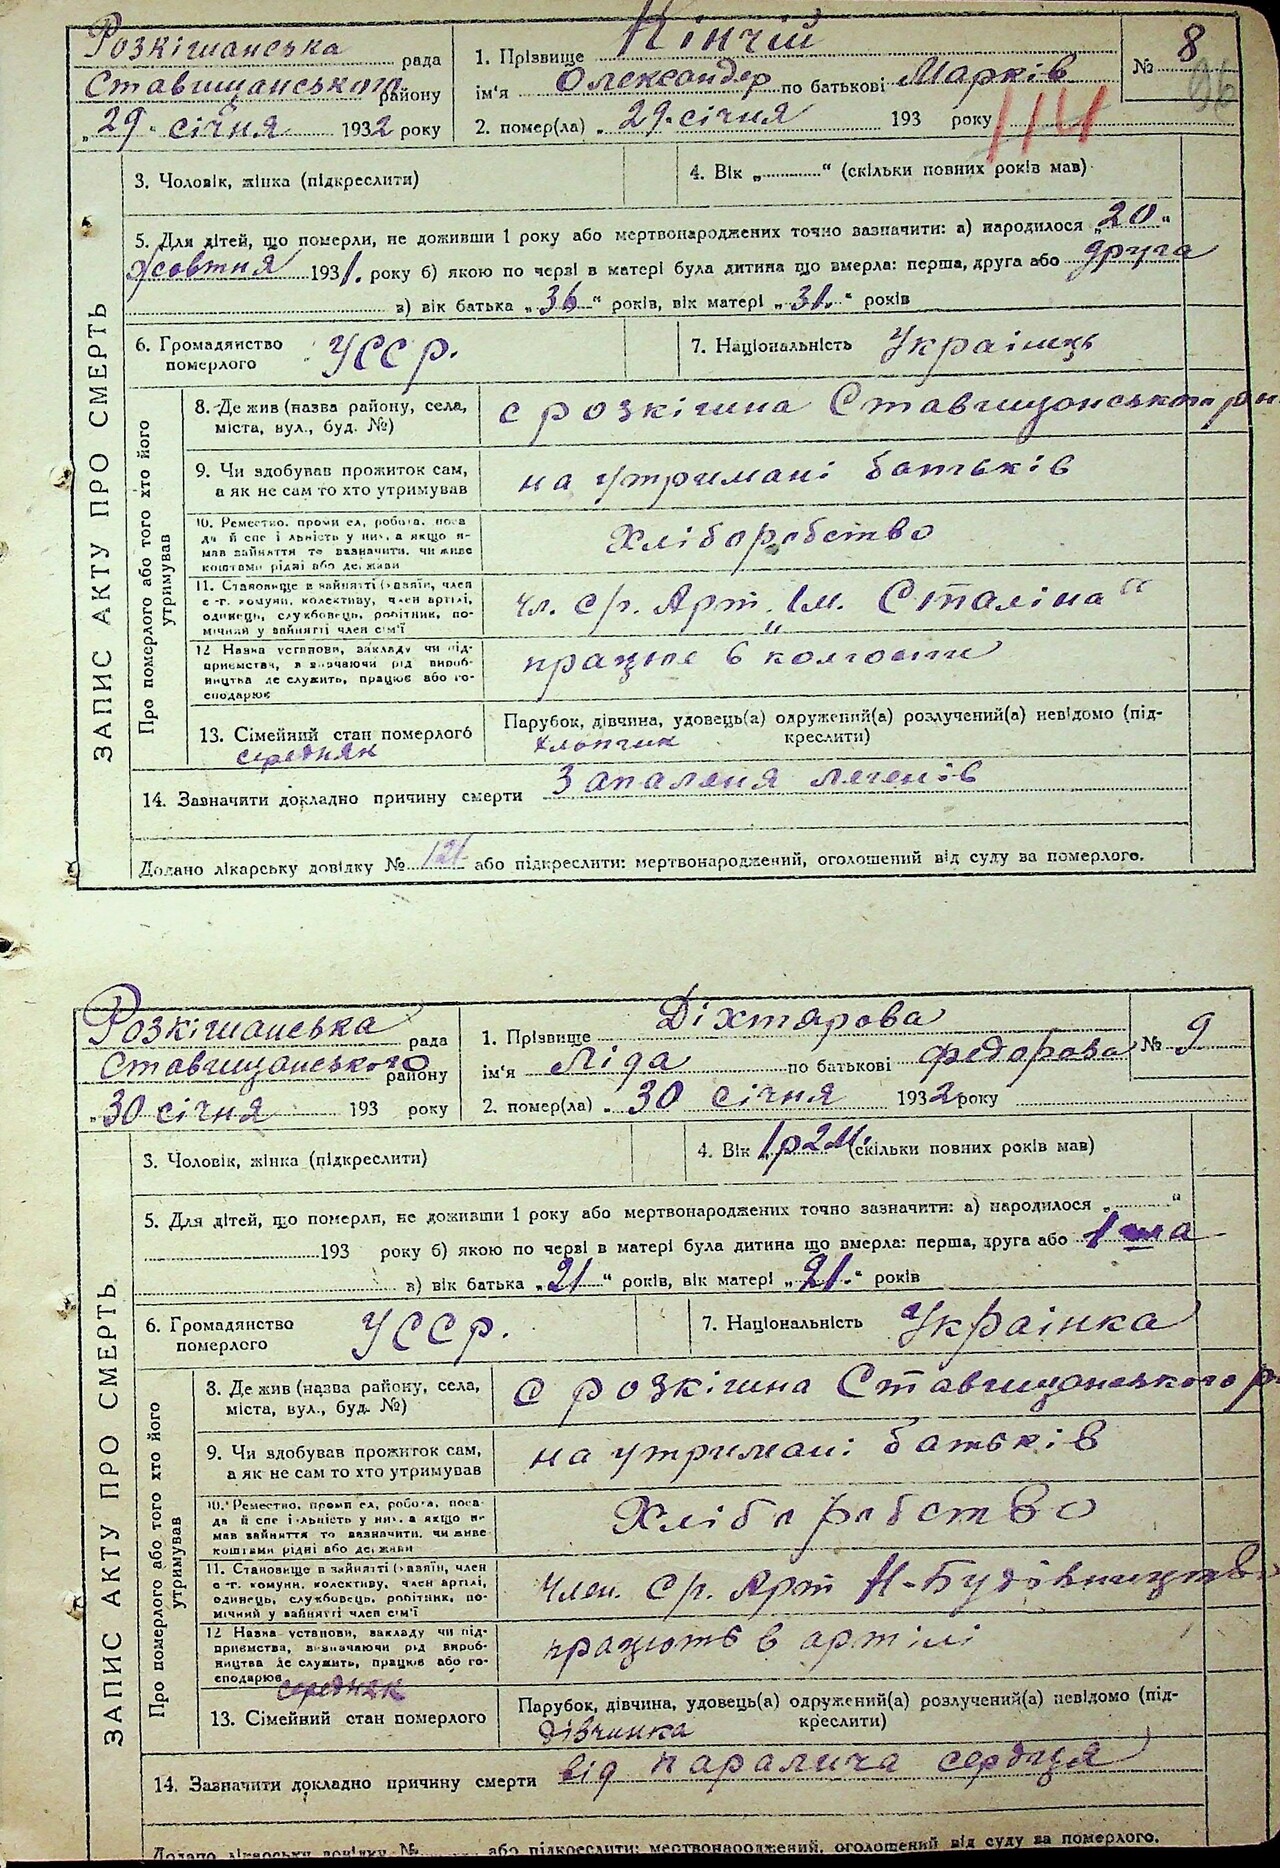 Розкішанська рада
Ставищанського району
„29" січня 1932 року
1. Прізвище Кінчій
ім'я Олександер по батькові Марків
2. помер(ла) „29 січня 193 року
№ 8
96
114
3. Чоловік, жінка (підкреслити)
4. Вік „ " (скільки повних років мав)
5. Для дітей, що померли, не доживши 1 року або мертвонароджених точно зазначити: а) народилося „20"
жовтня 1931. року б) якою по черзі в матері була дитина що вмерла: перша, друга або друга
в) вік батька „36" років, вік матері „31." років
6. Громадянство
померлого
УССР.
7. Національність Українець
ЗАПИС АКТУ ПРО СМЕРТЬ
Про померлого або того хто його
утримував
8. Де жив (назва району, села,
міста, вул., буд. №)
с розкішна Ставищанського рай
9. Чи здобував прожиток сам,
а як не сам то хто утримував
на утримані батьків
10. Ремество, проми ел, робота, поса
да й спе і льність у них, а якщо н-
мав зайняття то зазначити, чи живе
коштами рідні або держави
Хліборобство
11. Становище в зайнятті (хазяїн, член
с-г. комуни, колективу, член артілі,
одинець, службовець, робітник, по-
мічний у зайнятті член сім'ї
чл. с/г. Арт. „Ім. Сталіна"
12 Назва установи, закладу чи під-
приємства, визначаючи рід вироб-
ництва де служить, працює або го-
сподарює
працює в колгоспи
13. Сімейний стан померлого
середняк
Парубок, дівчина, удовець(а) одружений(а) розлучений(а) невідомо (під-
креслити)
хлопчик
14. Зазначити докладно причину смерти Запаленя легенів
Додано лікарську довідку № 121 або підкреслити: мертвонароджений, оголошений від суду за померлого.
Розкішанська рада
Ставищанського району
„30 січня 193 року
1. Прізвище Діхтярова
ім'я Ліда по батькові Федорова
2. помер(ла) „30 січня 1932 року
№ 9
3. Чоловік, жінка (підкреслити)
4. Вік „1р 2 м. (скільки повних років мав)
5. Для дітей, що померли, не доживши 1 року або мертвонароджених точно зазначити: а) народилося „ "
193 року б) якою по черзі в матері була дитина що вмерла: перша, друга або 1 ша
в) вік батька „21" років, вік матері „21." років
6. Громадянство
померлого
УССР.
7. Національність Українка
ЗАПИС АКТУ ПРО СМЕРТЬ
Про померлого або того хто його
утримував
8. Де жив (назва району, села,
міста, вул., буд. №)
с розкішна Ставищанського р
9. Чи здобував прожиток сам,
а як не сам то хто утримував
на утримані батьків
10. Ремество, проми ел, робота, поса-
да й спе і льність у них, а якщо н-
мав зайняття то зазначити, чи живе
коштами рідні або держави
Хліборобство
11. Становище в зайнятті (хазяїн, член
с-г. комуни, колективу, член артілі,
одинець, службовець, робітник, по-
мічний у зайнятті член сім'ї
член. с/г. Арт Н-Будівництво
12 Назва установи, закладу чи під-
приємства, визначаючи рід вироб-
ництва де служить, працює або го-
сподарює
працють в артілі
середняк
13. Сімейний стан померлого
Парубок, дівчина, удовець(а) одружений(а) розлучений(а) невідомо (під-
креслити)
дівчинка
14. Зазначити докладно причину смерти від паралича сердця
Додано лікарську довідку № або підкреслити: мертвонароджений, оголошений від суду за померлого.